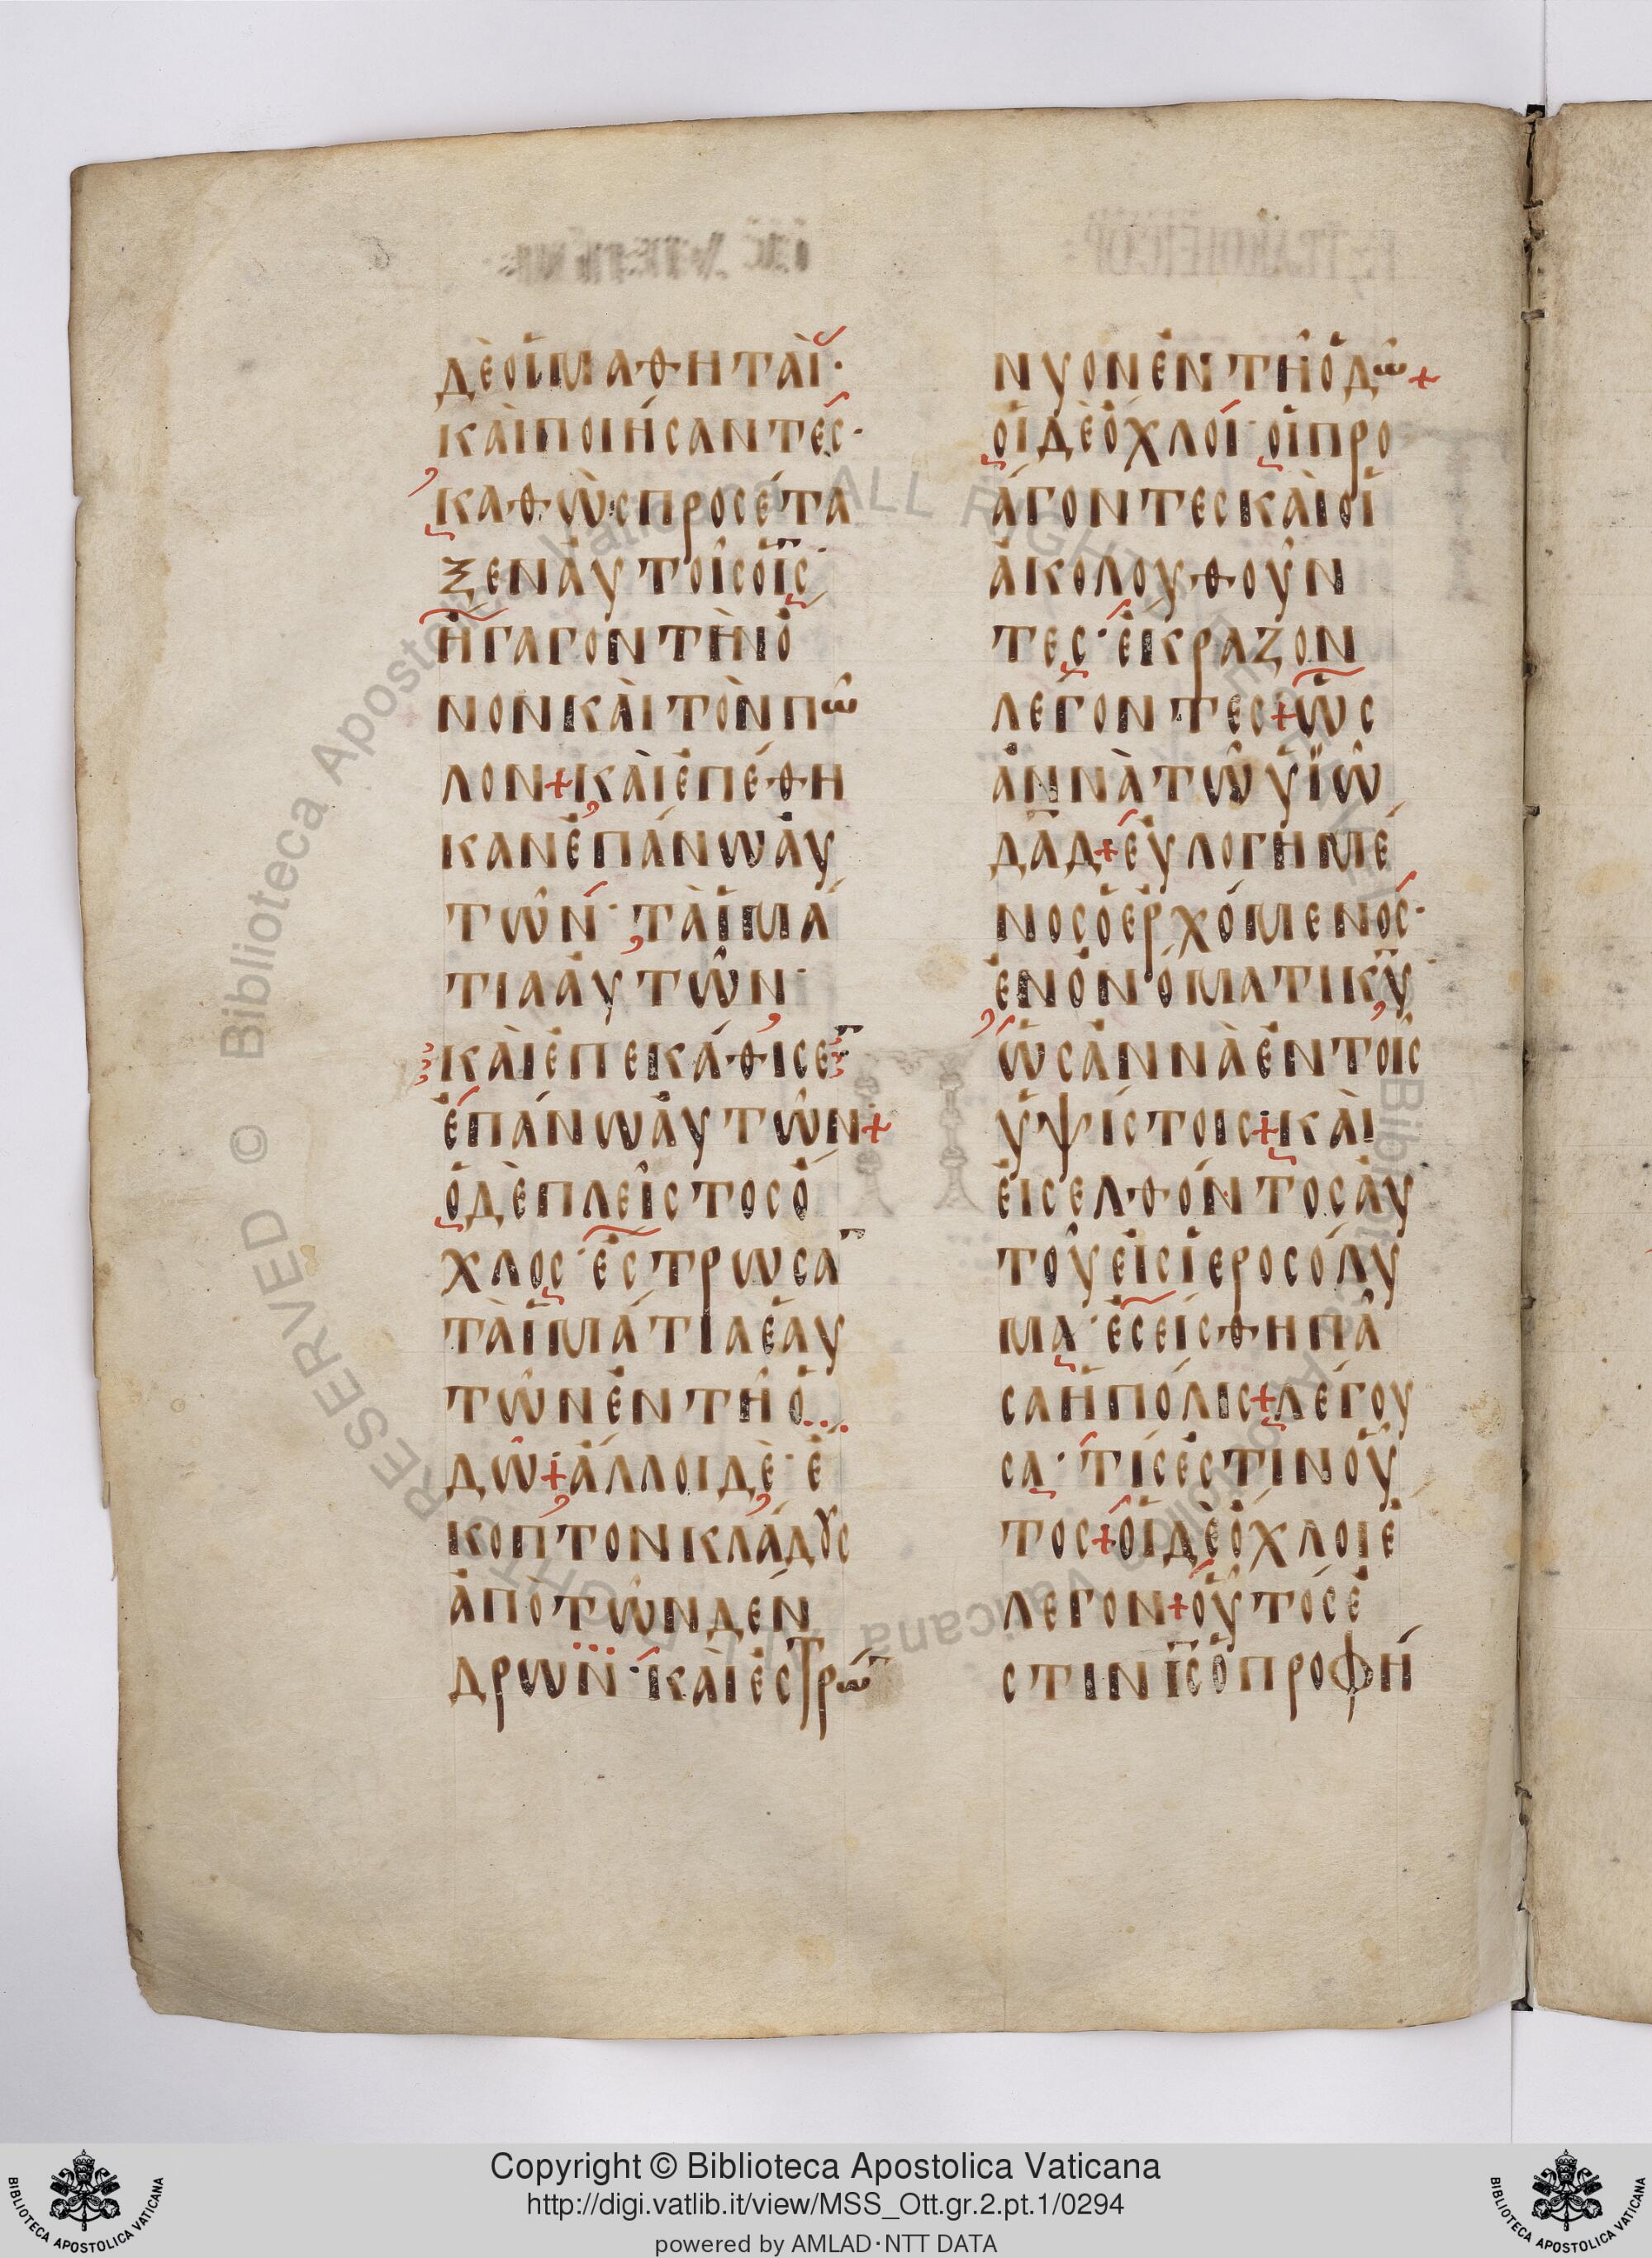 ΔὲΟἱΜΑΘΗΤΑὶ·
ΚΑὶΠΟΙΉΣΑΝΤΕΣ·
ΚΑΘῺΣΠΡΟΣΈΤΑ
ΞΕΝἈΥΤΟῖΣὉῙΣ̄
ἬΓΑΓΟΝΤῊΝὌ
ΝΟΝΚΑὶΤῸΝΠῶ
ΛΟΝ+ΚΑὶἘΠΈΘΗ
ΚΑΝἘΠΆΝΩἈΥ
ΤῶΝ·ΤᾺἹΜΆ
ΤΙΑἈΥΤῶΝ·
ΚΑὶἘΠΕΚΆΘΙΣΕ̄
ἘΠΆΝΩἈΥΤῶΝ+
ὉΔὲΠΛΕῖΣΤΟΣὌ
ΧΛΟΣ·ἜΣΤΡΩΣᾹ
ΤᾺἹΜΆΤΙΑἙΑΥ
ΤῶΝἘΝΤῇὉ
Δῶ+ἌΛΛΟΙΔὲ·Ἔ
ΚΟΠΤΟΝΚΛΆΔΟΥΣ
ἈΠῸΤῶΝΔΈΝ
ΔΡΩΝ·ΚΑὶἘΣΤΡΏ̄
ΝΥΟΝἘΝΤῇὉΔῶ+
ΟἱΔὲὌΧΛΟΙ·ΟἱΠΡΟ
ΆΓΟΝΤΕΣΚΑὶΟἱ
ἈΚΟΛΟΥΘΟῦΝ
ΤΕΣ·ἜΚΡΑΖΟΝ
ΛΈΓΟΝΤΕΣ+ὩΣ
ἈΝΝᾺΤῶΥἱῶ
ΔᾹΔ+ἘΥΛΟΓΗΜΈ
ΝΟΣὉἘΡΧΌΜΕΝΟΣ·
ἘΝὈΝΌΜΑΤΙΚ̄Ῡ·
ὩΣΑΝΝᾺἘΝΤΟῖΣ
ὙΨΊΣΤΟΙΣ+ΚΑὶ
ἘΙΣΕΛΘΌΝΤΟΣἈΥ
ΤΟῦἘΙΣἹΕΡΟΣΌΛΥ
ΜΑ·ἘΣΕΊΣΘΗΠᾶ
ΣΑἩΠΌΛΙΣ+ΛΈΓΟΥ
ΣΑ·ΤΊΣἘΣΤΙΝΟὟ
ΤΟΣ+ὉΙΔὲὌΧΛΟΙἜ
ΛΕΓΟΝ+ΟὟΤΌΣἘ
ΣΤΙΝῙΣ̄ὉΠΡΟΦΉ
Copyright © Biblioteca Apostolica Vaticana
http://digi.vatlib.it/view/MSS_Ott.gr.2.pt.1/0294
powered by AMLAD·NTT DATA
BIBLIOTECA APOSTOLICA VATICANA
BIBLIOTECA APOSTOLICA VATICANA